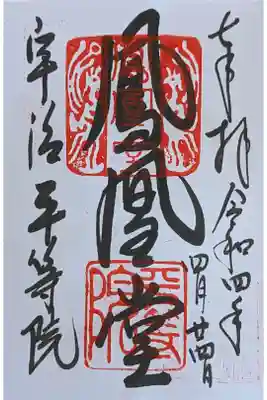 奉拝 令和四年
四月廿四日
鳳凰堂
宇治 平等院